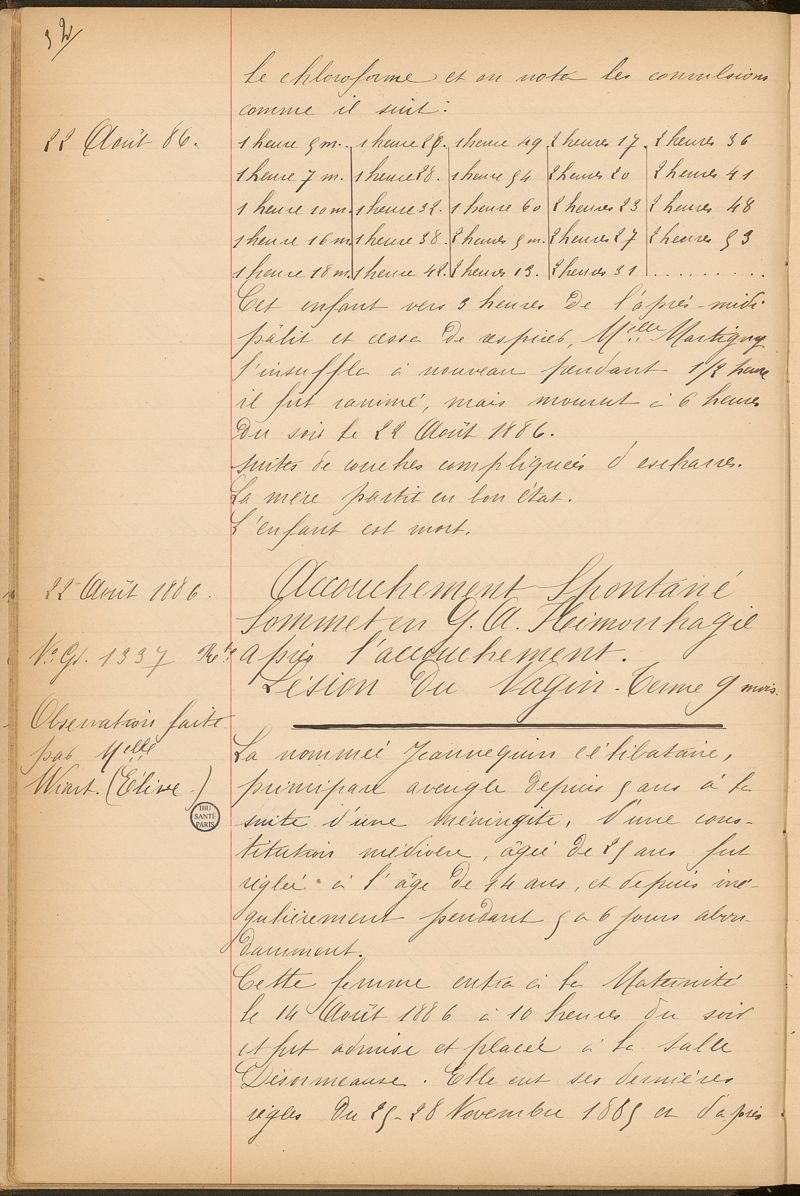 le chloroforme et on nota les convulsions
comme il suit:
22 Août 86.
1 heure 5 m. 1 heure 25. 1 heure 49 2 heures 17. 2 heures 36
1 heure 7 m. 1 heure 28. 1 heure 54 2 heures 20 2 heures 41
1 heure 10 m. 1 heure 32. 1 heure 60 2 heures 23 2 heures 48
1 heure 16 m 1 heure 38. 2 heures 5 m. 2 heures 27 2 heures 53
1 heure 18 m. 1 heure 42. 2 heures 13. 2 heures 31 . . . . . . . . . .
Cet enfant vers 3 heures de l'après-midi
pâlit et cessa de respirer, Melle Martigny
l'insuffla à nouveau pendant 1/2 heure
il fut ranimé, mais mourut à 6 heures
du soir le 22 Août 1886.
suites de couches compliquées d'escharres.
La mère partit en bon état.
L'enfant est mort.
22 Août 1886.
No. Gl. 1337
Observation faite
par Melle
Wiart. (Élive.)
BIU
SANTÉ
PARIS
Accouchement Spontané
Sommet en G. A. Hémorrhagie
après l'accouchement.
Lésion du Vagin. Terme 9 mois.
La nommée Jeannequin célibataire,
primipare aveugle depuis 5 ans à la
suite d'une méningite, d'une cons-
titution médiocre, âgée de 25 ans fut
réglée à l'âge de 14 ans, et depuis irré-
gulièrement pendant 5 à 6 jours abon-
damment.
Cette femme entra à la Maternité
le 14 Août 1886 à 10 heures du soir
et fut admise et placée à la salle
Désormeaux. Elle eut ses dernières
règles du 25-28 Novembre 1885 et d'après